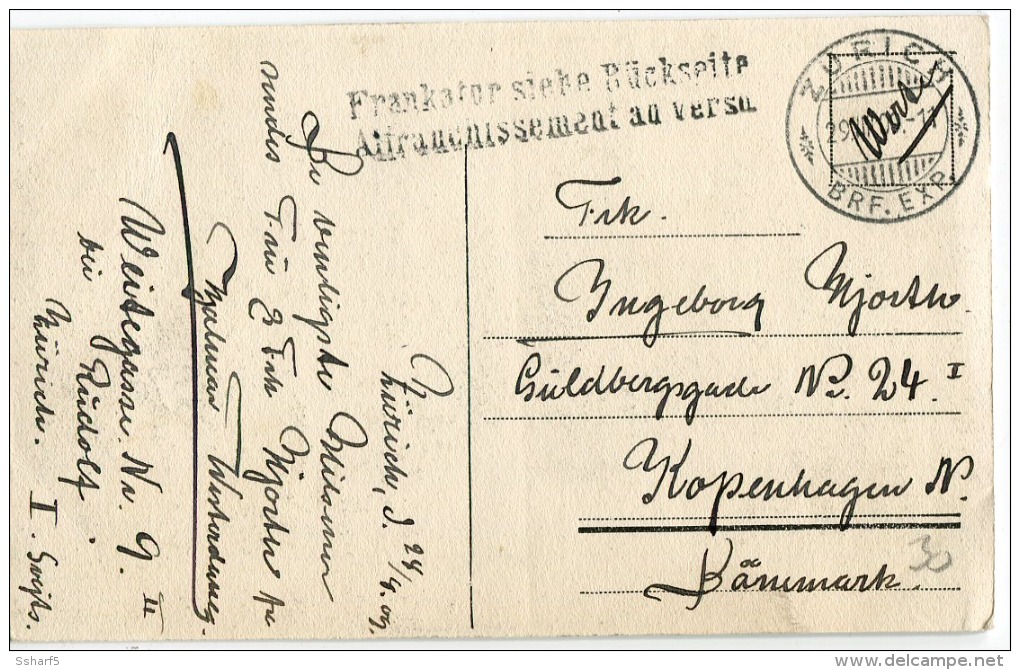 Frankatur siehe Rückseite
Affranchissement au verso
ZÜRICH
29.
BRF. EXP.
Frk.
Ingeborg Hjorth
Guldbergsgade No. 24 I
Kopenhagen N.
Dänemark.
30
Zürich, d. 24/4. 09.
De venligste Hilsener
Hjorth
Hjalmar
Weitegasse Nr. 9. II
bei Rudolf.
Zürich. I.
Ssharf5
delcampe.net